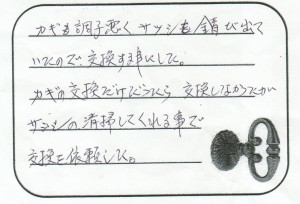 カギも調子悪くサッシも錆び出て
いたので、交換する事にした。
カギの交換だけだったら交換しなかったが
サッシの清掃してくれる事で
交換を依頼した。